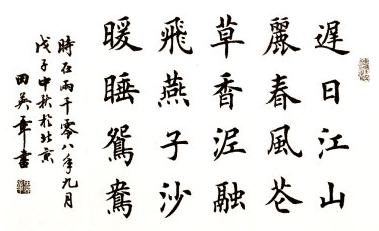 遲日江山
麗春風花
草香泥融
飛燕子沙
暖睡鴛鴦
時在兩千零八年九月
戊子中秋於北京
田英章書